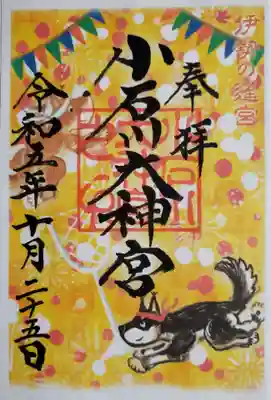 伊勢の経宮
奉拝
小石川大神宮
令和五年十月二十五日